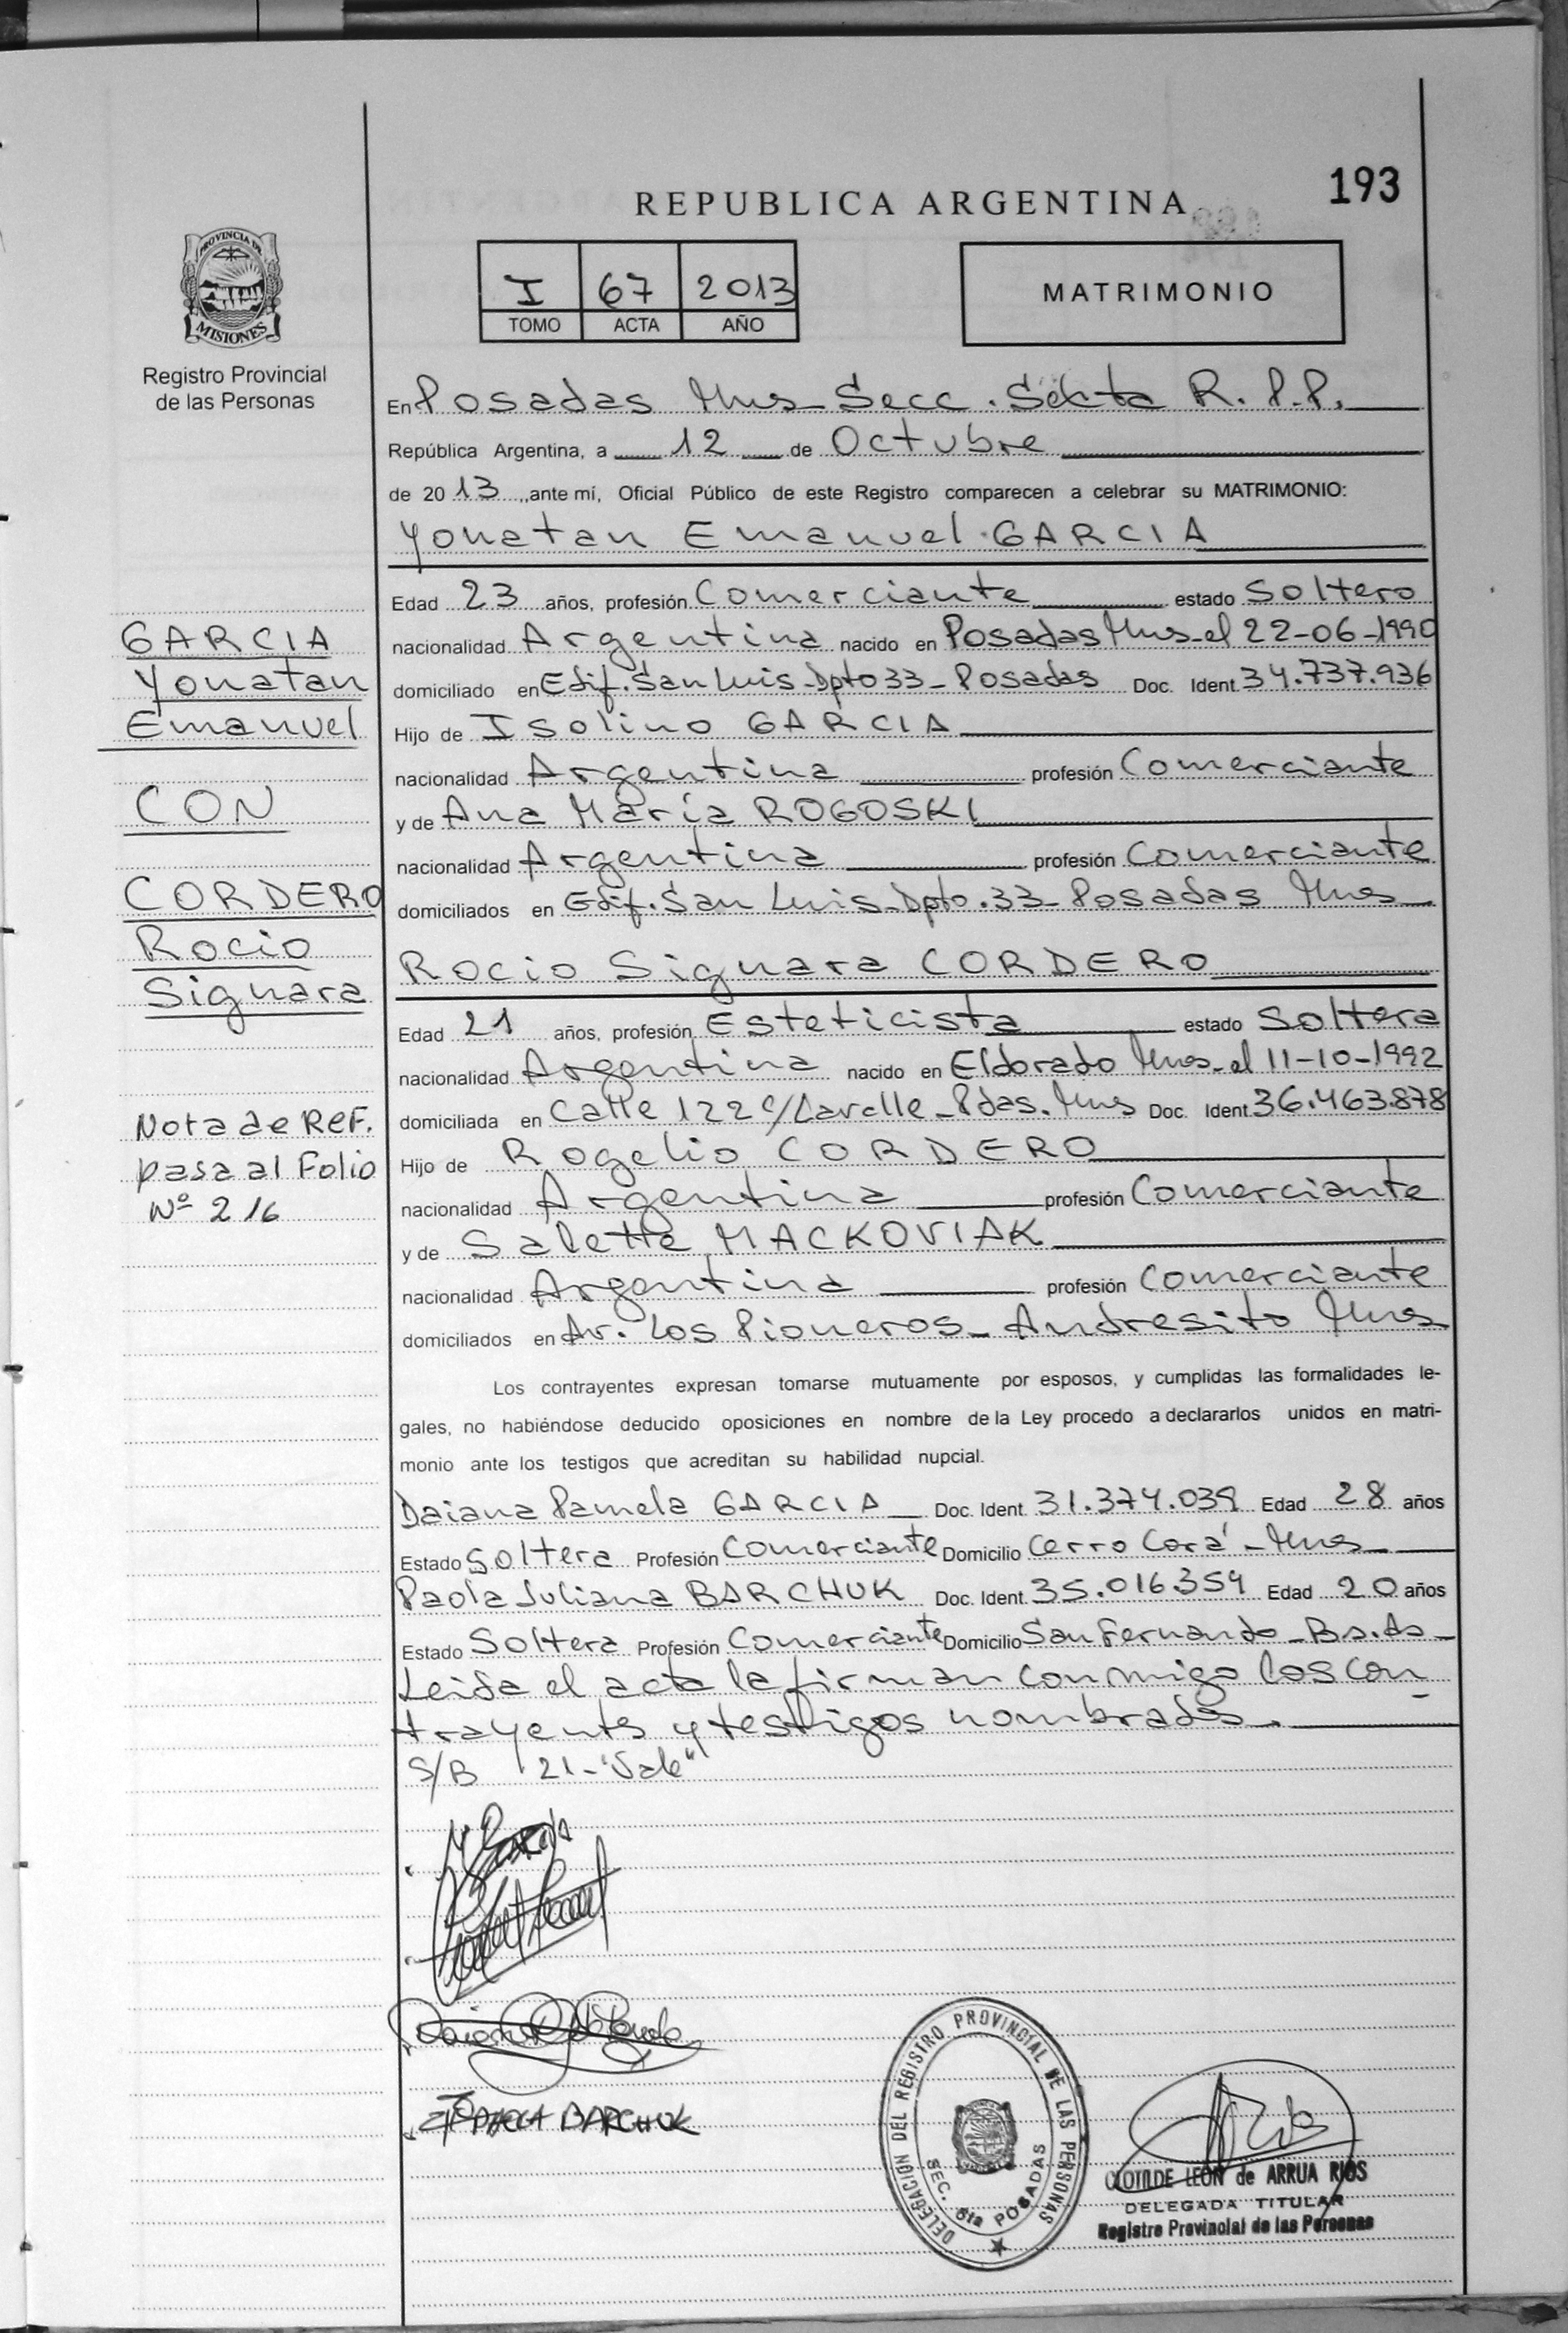 193
REPUBLICA ARGENTINA
PROVINCIA DE
MISIONES
Registro Provincial
de las Personas
I 67 2013
TOMO ACTA AÑO
MATRIMONIO
En Posadas Mnes Secc. Sexta R. P. P.
República Argentina, a 12 de Octubre
de 2013, ante mí, Oficial Público de este Registro comparecen a celebrar su MATRIMONIO:
Yonatan Emanuel GARCIA
Edad 23 años, profesión Comerciante estado Soltero
nacionalidad Argentina nacido en Posadas Mnes el 22-06-1990
domiciliado en Edif. San Luis Dpto 33 - Posadas Doc. Ident. 34.737.936
Hijo de Isolino GARCIA
nacionalidad Argentina profesión Comerciante
y de Ana María ROGOSKI
nacionalidad Argentina profesión Comerciante
domiciliados en Edif. San Luis Dpto. 33 - Posadas Mnes
Rocio Signara CORDERO
Edad 21 años, profesión Esteticista estado Soltera
nacionalidad Argentina nacido en Eldorado Mnes - el 11-10-1992
domiciliada en Calle 122 c/Lavalle - Pdas. Mnes Doc. Ident. 36.463.878
Hijo de Rogelio CORDERO
nacionalidad Argentina profesión Comerciante
y de Salette MACKOVIAK
nacionalidad Argentina profesión Comerciante
domiciliados en Av. Los Pioneros - Andresito Mnes
Los contrayentes expresan tomarse mutuamente por esposos, y cumplidas las formalidades le-
gales, no habiéndose deducido oposiciones en nombre de la Ley procedo a declararlos unidos en matri-
monio ante los testigos que acreditan su habilidad nupcial.
Daiana Pamela GARCIA Doc. Ident. 31.374.039 Edad 28 años
Estado Soltera Profesión Comerciante Domicilio Cerro Corá - Mnes
Paola Juliana BARCHUK Doc. Ident. 35.016.359 Edad 20 años
Estado Soltera Profesión Comerciante Domicilio San Fernando - Bs. As -
Leida el acta la firman conmigo los con
trayentes y testigos nombrados.
S/B "21 - Vale"
GARCIA
Yonatan
Emanuel
CON
CORDERO
Rocio
Signara
Nota de REF.
pasa al Folio
Nº 216
BARCHUK
DELEGACION DEL REGISTRO PROVINCIAL DE LAS PERSONAS
SEC. 6ta POSADAS
CLOTILDE LEON de ARRUA RIOS
DELEGADA TITULAR
Registro Provincial de las Personas